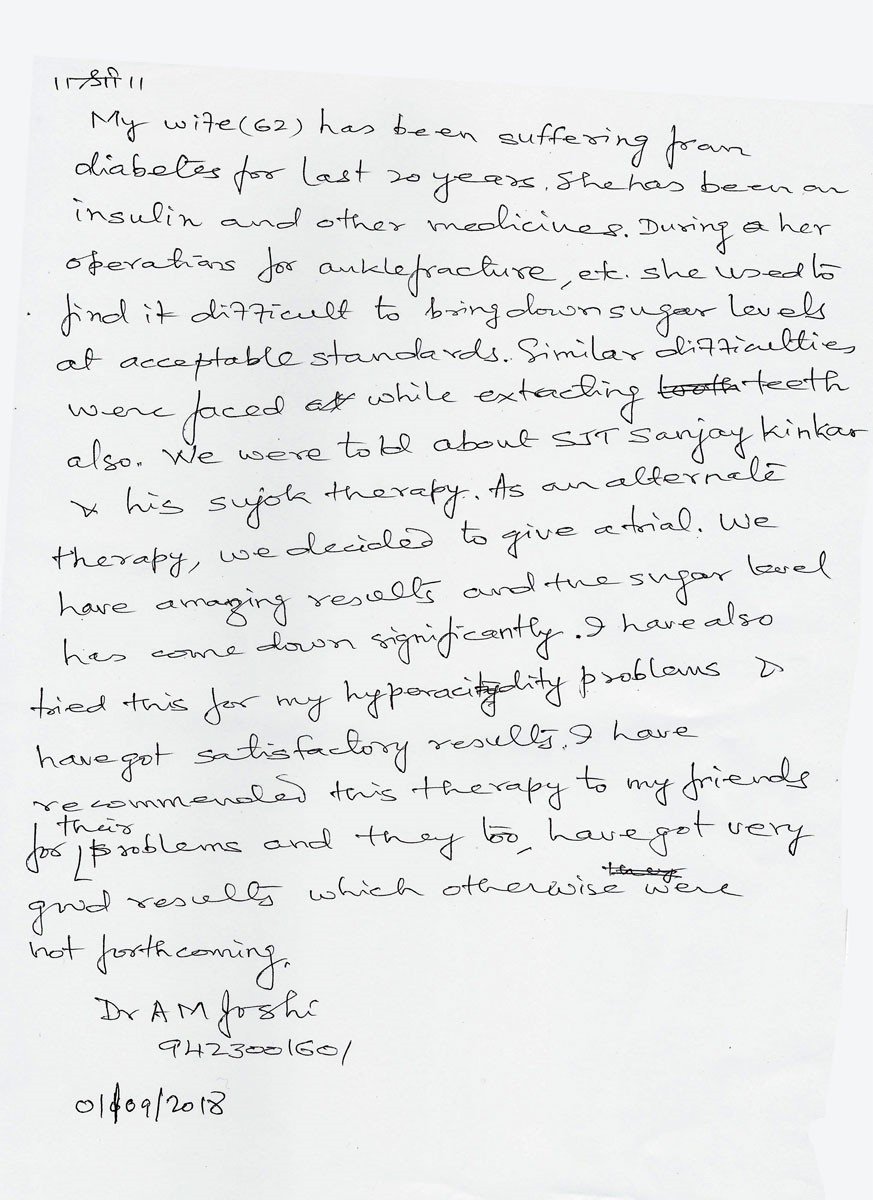 ॥ श्री ॥
My wife (62) has been suffering from
diabetes for last 20 years. She has been on
insulin and other medicines. During her
operations for anklefracture, etc. she used to
find it difficult to bring down sugar levels
at acceptable standards. Similar difficulties
were faced while extracting teeth
also. We were told about SJT Sanjay Kinkar
& his sujok therapy. As an alternate
therapy, we decided to give a trial. We
have amazing results and the sugar level
has come down significantly. I have also
tried this for my hyperacidity problems &
have got satisfactory results. I have
recommended this therapy to my friends
for their problems and they too, have got very
good results which otherwise were
not forthcoming.
Dr A M Joshi
9423001601
01/09/2018